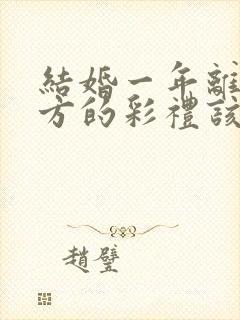 結婚一年離
方的彩禮該
趙璧